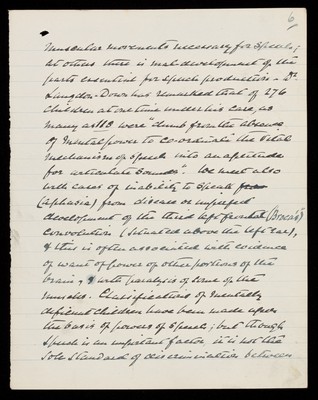 6
muscular movements necessary for speech;
at others there is mal-development of the
parts essential for speech production - Dr
Langdon-Down has remarked that of 276
children at one time under his care, as
many as 113 were "dumb from the absence
of mental power to co-ordinate the vital
mechanism of speech into an aptitude
for articulate sounds". We meet also
with cases of inability to speak from
(aphasia) from disease or imperfect
development of the third left frontal (Broca's)
convolution (situated above the left ear),
& this is often associated with evidence
of want of power of other portions of the
brain, & with paralysis of some of the
muscles. Classifications of mentally
deficient children have been made upon
the basis of powers of speech; but though
speech is an important factor it is not the
sole standard of discrimination between